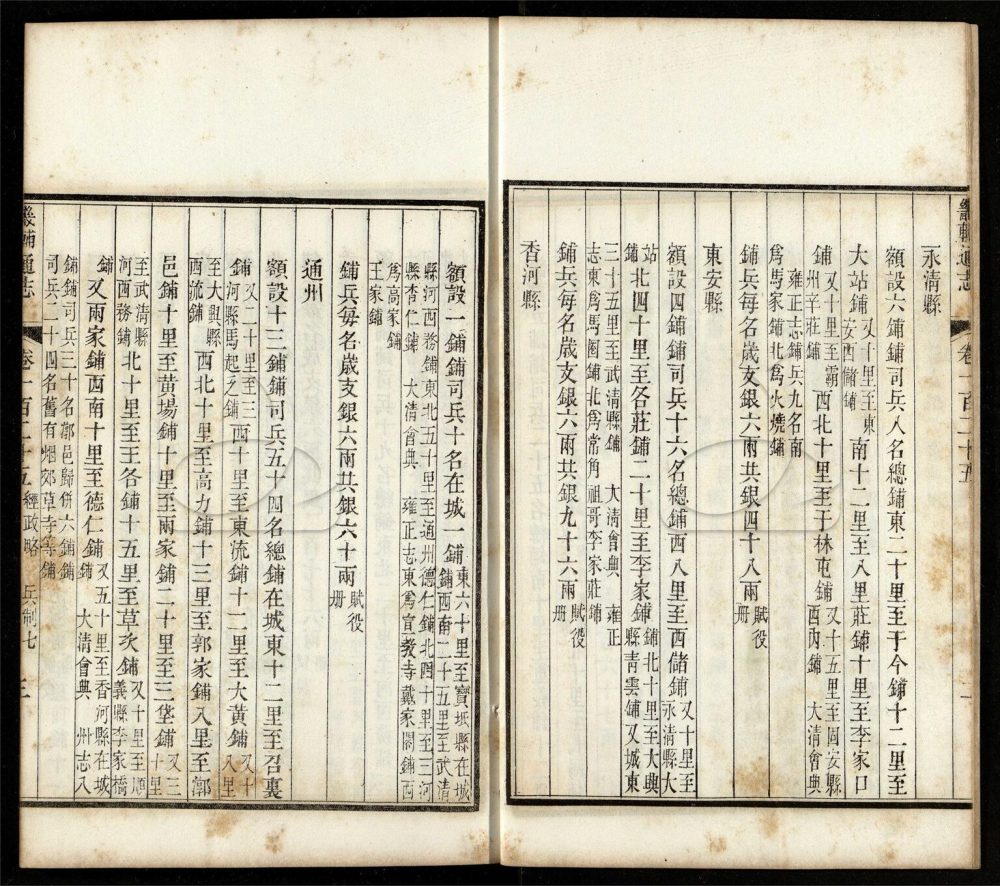 畿輔通志 卷一百二十五
永清縣
額設六鋪鋪司兵八名總鋪東二十里至于今鋪十二里至
大站鋪又十里至東安西儲鋪南十二里至八里莊鋪十里至李家口
鋪又十里至霸州辛莊鋪西北十里至于林屯鋪又十五里至固安縣西內鋪 大清會典
雍正志鋪兵九名南
爲馬家鋪北爲火燒鋪
鋪兵每名歲支銀六兩共銀四十八兩賦役冊
東安縣
額設四鋪鋪司兵十六名總鋪西八里至西儲鋪又十里至永清縣大
站鋪北四十里至各莊鋪二十里至李家鋪鋪北十里至大興縣靑雲鋪又城東
三十五里至武清縣鋪 大清會典 雍正
志東爲馬圈鋪北爲常角祖哥李家莊鋪
鋪兵每名歲支銀六兩共銀九十六兩賦役冊
香河縣
額設一鋪鋪司兵十名在城一鋪東六十里至寶坻縣在城鋪西南二十五里至武清
縣河西務鋪東北五十里至通州德仁鋪北四十里至三河
縣杳仁鋪 大清會典 雍正志東爲宣教寺戴家閣鋪西
爲高家鋪
王家鋪
鋪兵每名歲支銀六十兩共銀六十兩賦役冊
通州
額設十三鋪鋪司兵五十四名總鋪在城東十二里至召裏
鋪又二十里至三河縣馬起乏鋪西十里至東流鋪十二里至大黃鋪又八里
至大興縣西流鋪西北十里至高力鋪十三里至郭家鋪八里至郭
邑鋪十里至黃場鋪十里至兩家鋪二十里至三垡鋪又三十里
至武清縣河西務鋪北十里至王各鋪十五里至草次鋪又十里至順義縣李家橋
鋪又兩家鋪西南十里至德仁鋪又五十里至香河縣在城鋪 大清會典 州志八
鋪鋪司兵三十名郭邑歸併六鋪鋪
司兵二十四名舊有烟郊草寺等鋪
畿輔通志 卷一百二十五 經政略 兵制七 三